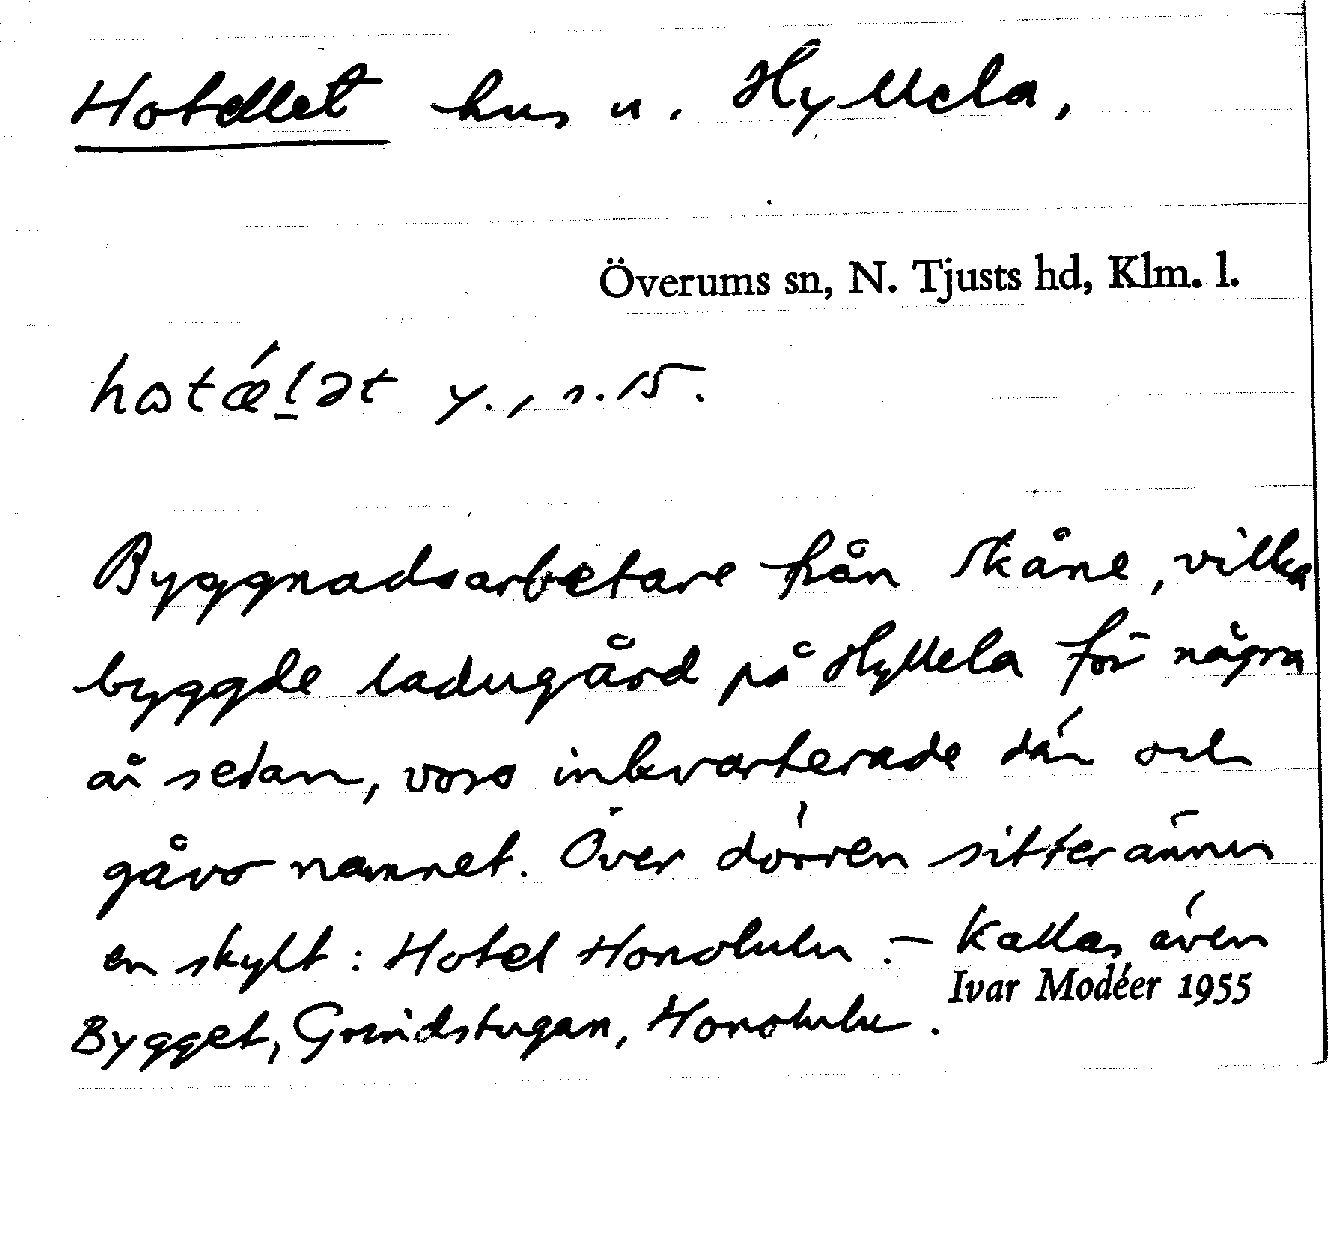 Hotellet hus u. Hyllela,
Överums sn, N. Tjusts hd, Klm. l.
hɷtǽl̠ət y., s. 15.
Byggnadsarbetare från Skåne, vilka
byggde ladugård på Hyllela för några
år sedan, voro inkvarterade där och
gåvo namnet. Över dörren sitter ännu
en skylt: Hotel Honolulu. – Kallas även
Ivar Modéer 1955
Bygget, Grindstugan, Honolulu.